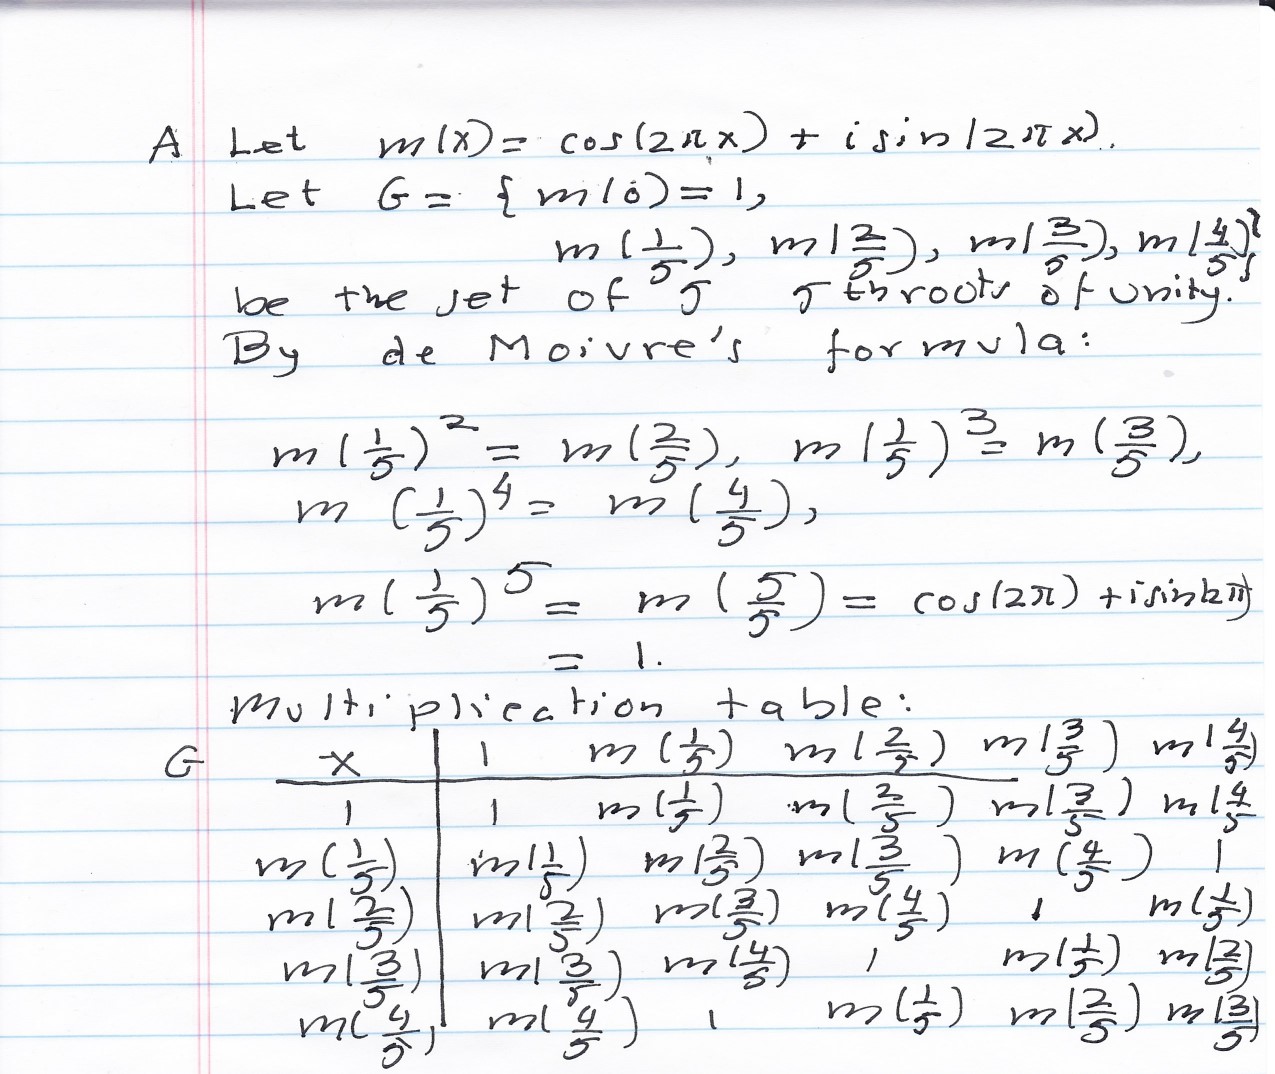 A Let m(x) = cos(2πx) + i sin(2πx).
Let G = { m(0) = 1,
m(1/5), m(2/5), m(3/5), m(4/5)}
be the set of 5 5th roots of unity.
By de Moivre's formula:
m(1/5)^2 = m(2/5), m(1/5)^3 = m(3/5),
m(1/5)^4 = m(4/5),
m(1/5)^5 = m(5/5) = cos(2π) + i sin(2π)
= 1.
Multiplication table:
G x | 1 m(1/5) m(2/5) m(3/5) m(4/5)
1 | 1 m(1/5) m(2/5) m(3/5) m(4/5
m(1/5) | m(1/5) m(2/5) m(3/5) m(4/5) 1
m(2/5) | m(2/5) m(3/5) m(4/5) 1 m(1/5)
m(3/5) | m(3/5) m(4/5) 1 m(1/5) m(2/5)
m(4/5) | m(4/5) 1 m(1/5) m(2/5) m(3/5)